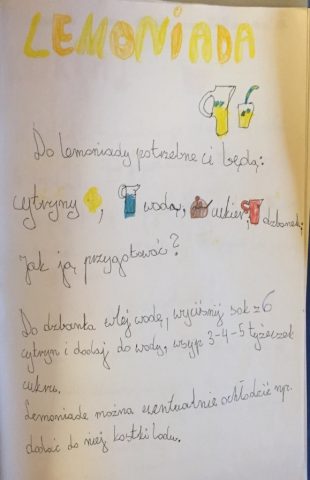 LEMONIADA
Do lemoniady potrzebne ci będą:
cytryny, woda, cukier, dzbanek.
Jak ją przygotować?
Do dzbanka wlej wodę, wyciśnij sok z 6
cytryn i dodaj do wody, wsyp 3-4-5 łyżeczek
cukru.
Lemoniadę można ewentualnie ochłodzić np.
dodać do niej kostki lodu.